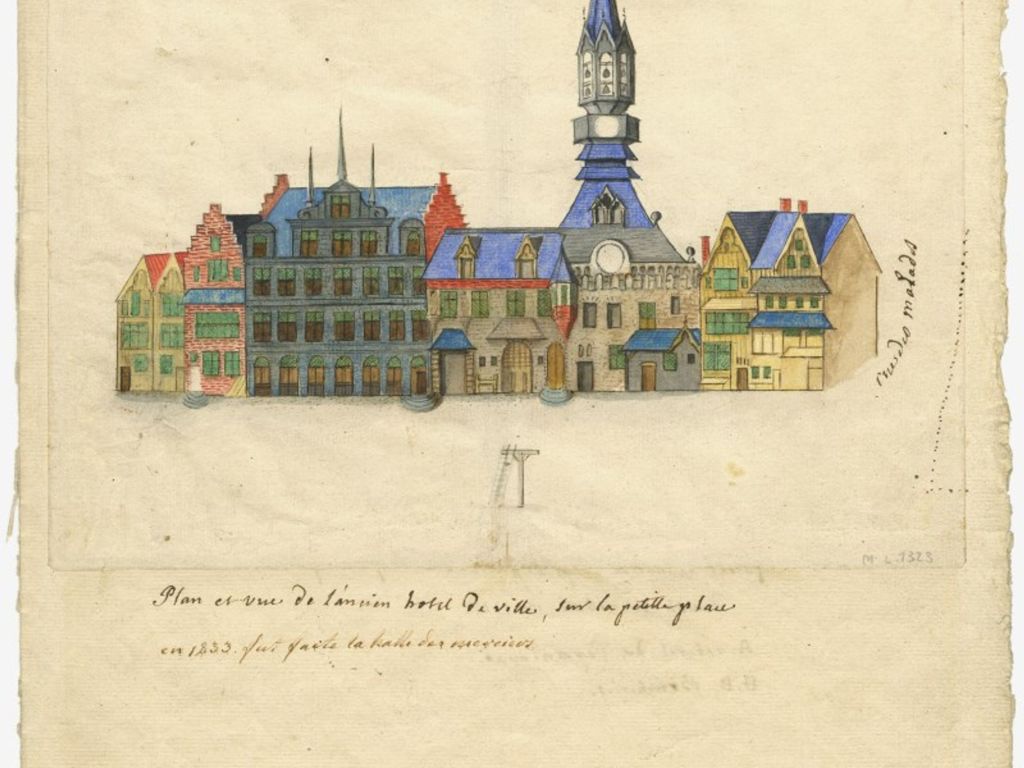 rue des malads
M. L. 1323
Plan et vue de l'ancien hotel de ville, sur la petitte place
en 1233. fut faite la halle des merciers